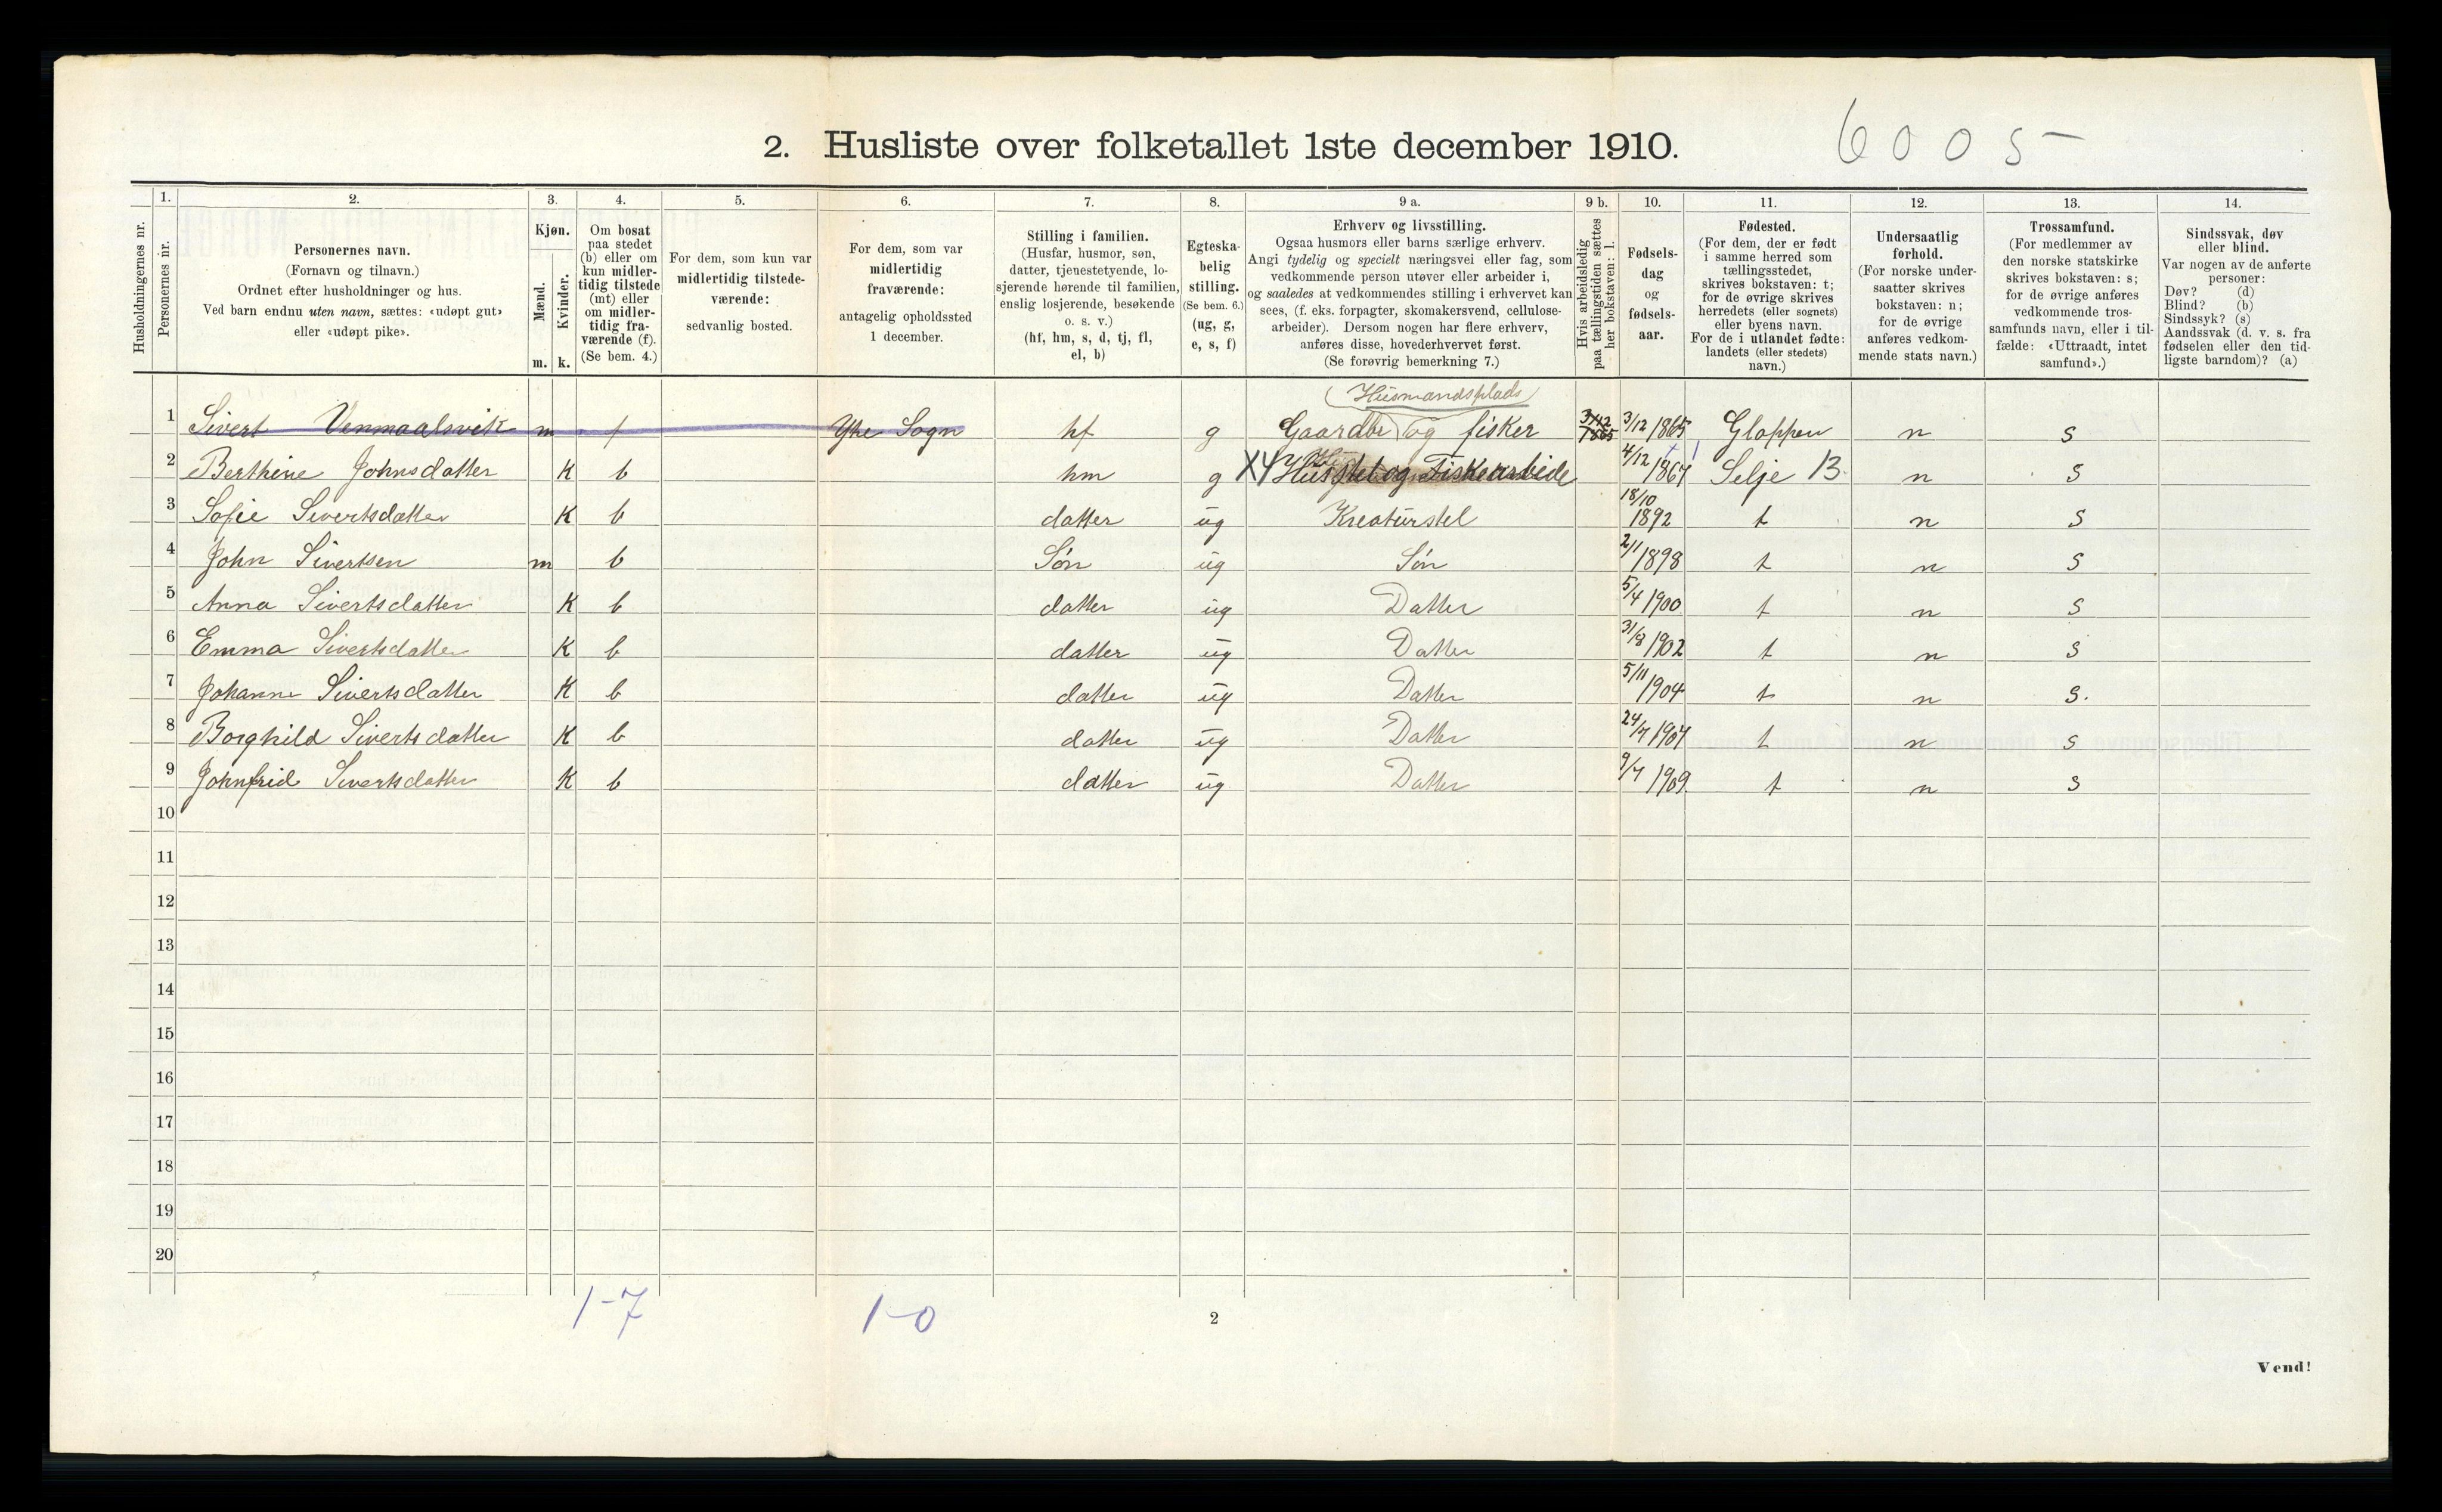 2. Husliste over folketallet 1ste december 1910.
6005
Husholdningernes nr.
1.
Personernes nr.
2.
Personernes navn.
(Fornavn og tilnavn.)
Ordnet efter husholdninger og hus.
Ved barn endnu uten navn, sættes: «udøpt gut»
eller «udøpt pike».
3.
Kjøn.
Mænd.
Kvinder.
m. k.
4.
Om bosat
paa stedet
(b) eller om
kun midler-
tidig tilstede
(mt) eller
om midler-
tidig fra-
værende (f).
(Se bem. 4.)
5.
For dem, som kun var
midlertidig tilstede-
værende:
sedvanlig bosted.
6.
For dem, som var
midlertidig
fraværende:
antagelig opholdssted
1 december.
7.
Stilling i familien.
(Husfar, husmor, søn,
datter, tjenestetyende, lo-
sjerende hørende til familien,
enslig losjerende, besøkende
o. s. v.)
(hf, hm, s, d, tj, fl,
el, b)
8.
Egteska-
belig
stilling.
(Se bem. 6.)
(ug, g,
e, s, f)
9 a.
Erhverv og livsstilling.
Ogsaa husmors eller barns særlige erhverv.
Angi tydelig og specielt næringsvei eller fag, som
vedkommende person utøver eller arbeider i,
og saaledes at vedkommendes stilling i erhvervet kan
sees, (f. eks. forpagter, skomakersvend, cellulose-
arbeider). Dersom nogen har flere erhverv,
anføres disse, hovederhvervet først.
(Se forøvrig bemerkning 7.)
9 b.
Hvis arbeidsledig
paa tællingstiden sættes
her bokstaven: l.
10.
Fødsels-
dag
og
fødsels-
aar.
11.
Fødested.
(For dem, der er født
i samme herred som
tællingsstedet,
skrives bokstaven: t;
for de øvrige skrives
herredets (eller sognets)
eller byens navn.
For de i utlandet fødte:
landets (eller stedets)
navn.)
12.
Undersaatlig
forhold.
(For norske under-
saatter skrives
bokstaven: n;
for de øvrige
anføres vedkom-
mende stats navn.)
13.
Trossamfund.
(For medlemmer av
den norske statskirke
skrives bokstaven: s;
for de øvrige anføres
vedkommende tros-
samfunds navn, eller i til-
fælde: «Uttraadt, intet
samfund».)
14.
Sindssvak, døv
eller blind.
Var nogen av de anførte
personer:
Døv? (d)
Blind? (b)
Sindssyk? (s)
Aandssvak (d. v. s. fra
fødselen eller den tid-
ligste barndom)? (a)
(Husmandsplads)
1 Sivert Venmaalsvik m f Ytre Sogn hf g Gaardbr og fisker 3/12 1865 3/12 1865 Gloppen n s
2 Berthine Johnsdatter K b hm g XY Husstel og Fiskearbeide 4/12 1867 Selje 13 n s
3 Sofie Sivertsdatter K b datter ug Kreaturstel 18/10 1892 t n s
4 John Sivertsen m b Søn ug Søn 2/1 1898 t n s
5 Anna Sivertsdatter K b datter ug Datter 5/4 1900 t n s
6 Emma Sivertsdatter K b datter ug Datter 31/8 1902 t n s
7 Johanne Sivertsdatter K b datter ug Datter 5/11 1904 t n s.
8 Borghild Sivertsdatter K b datter ug Datter 24/7 1907 t n s
9 Johnfrid Sivertsdatter K b datter ug Datter 9/7 1909 t n s
10
11
12
13
14
15
16
17
18
19
20
1-7 1-0
2
Vend!